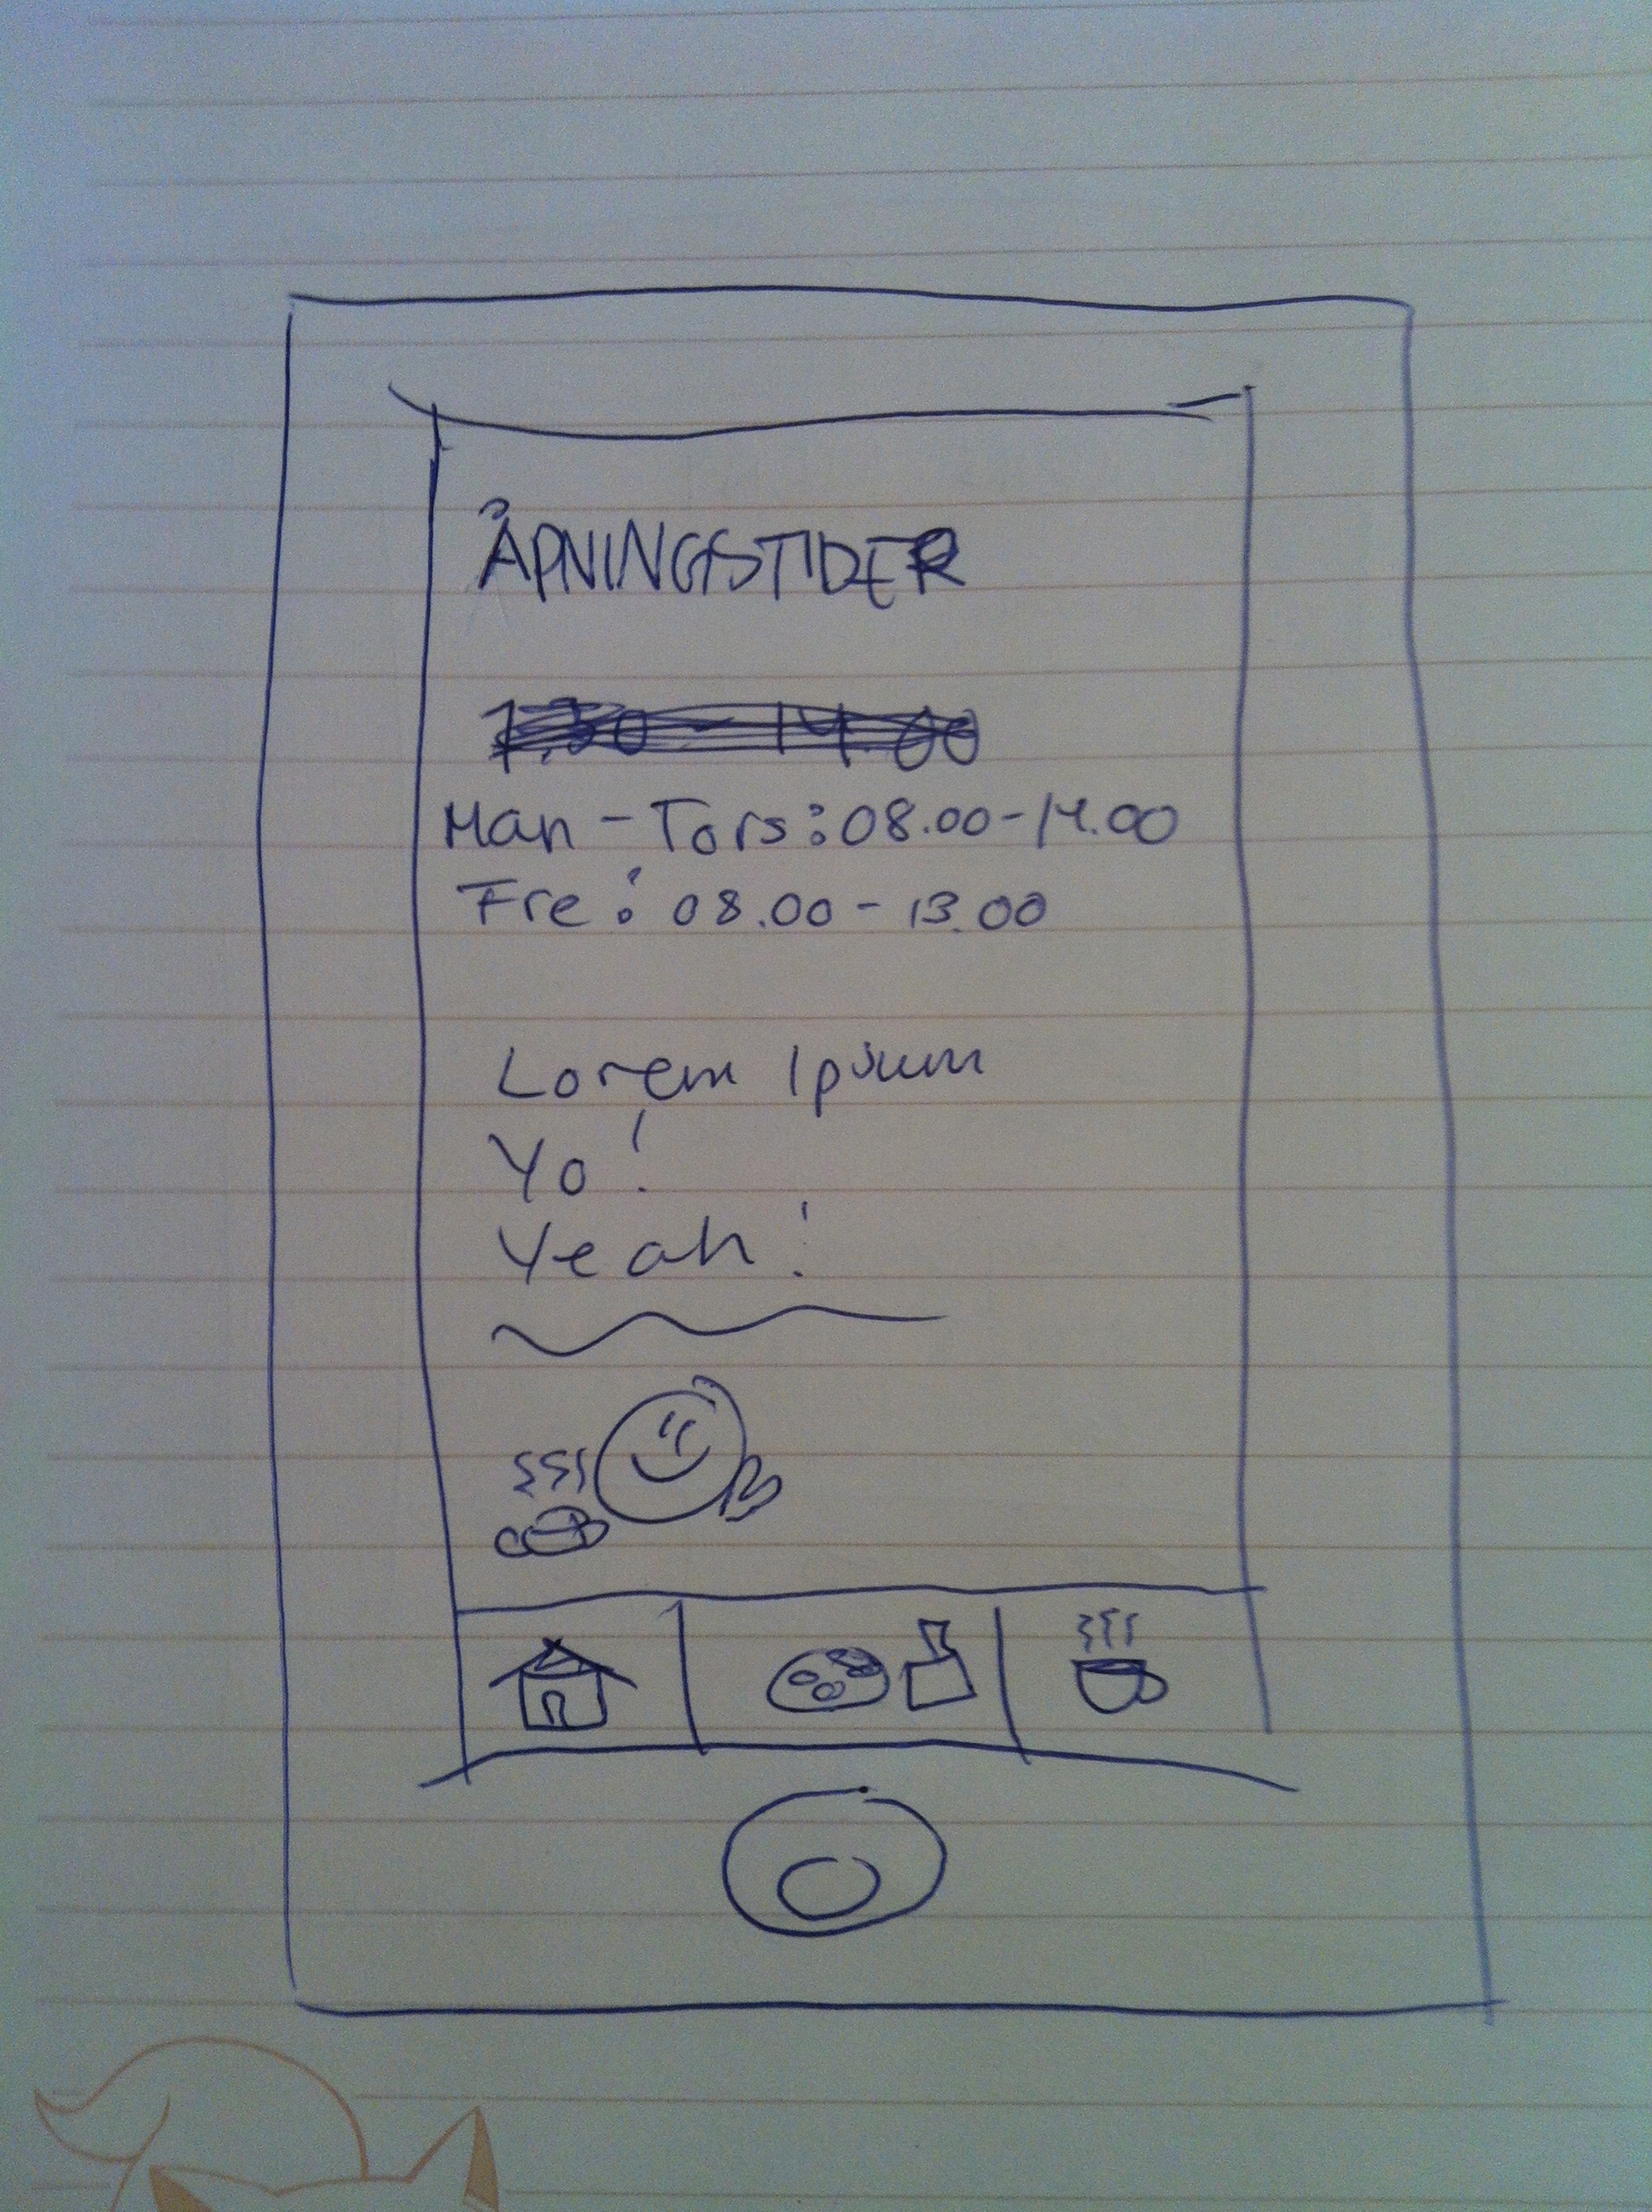 ÅPNINGSTIDER
Man - Tors: 08.00 - 14.00
Fre: 08.00 - 13.00
Lorem Ipsum
Yo!
Yeah!